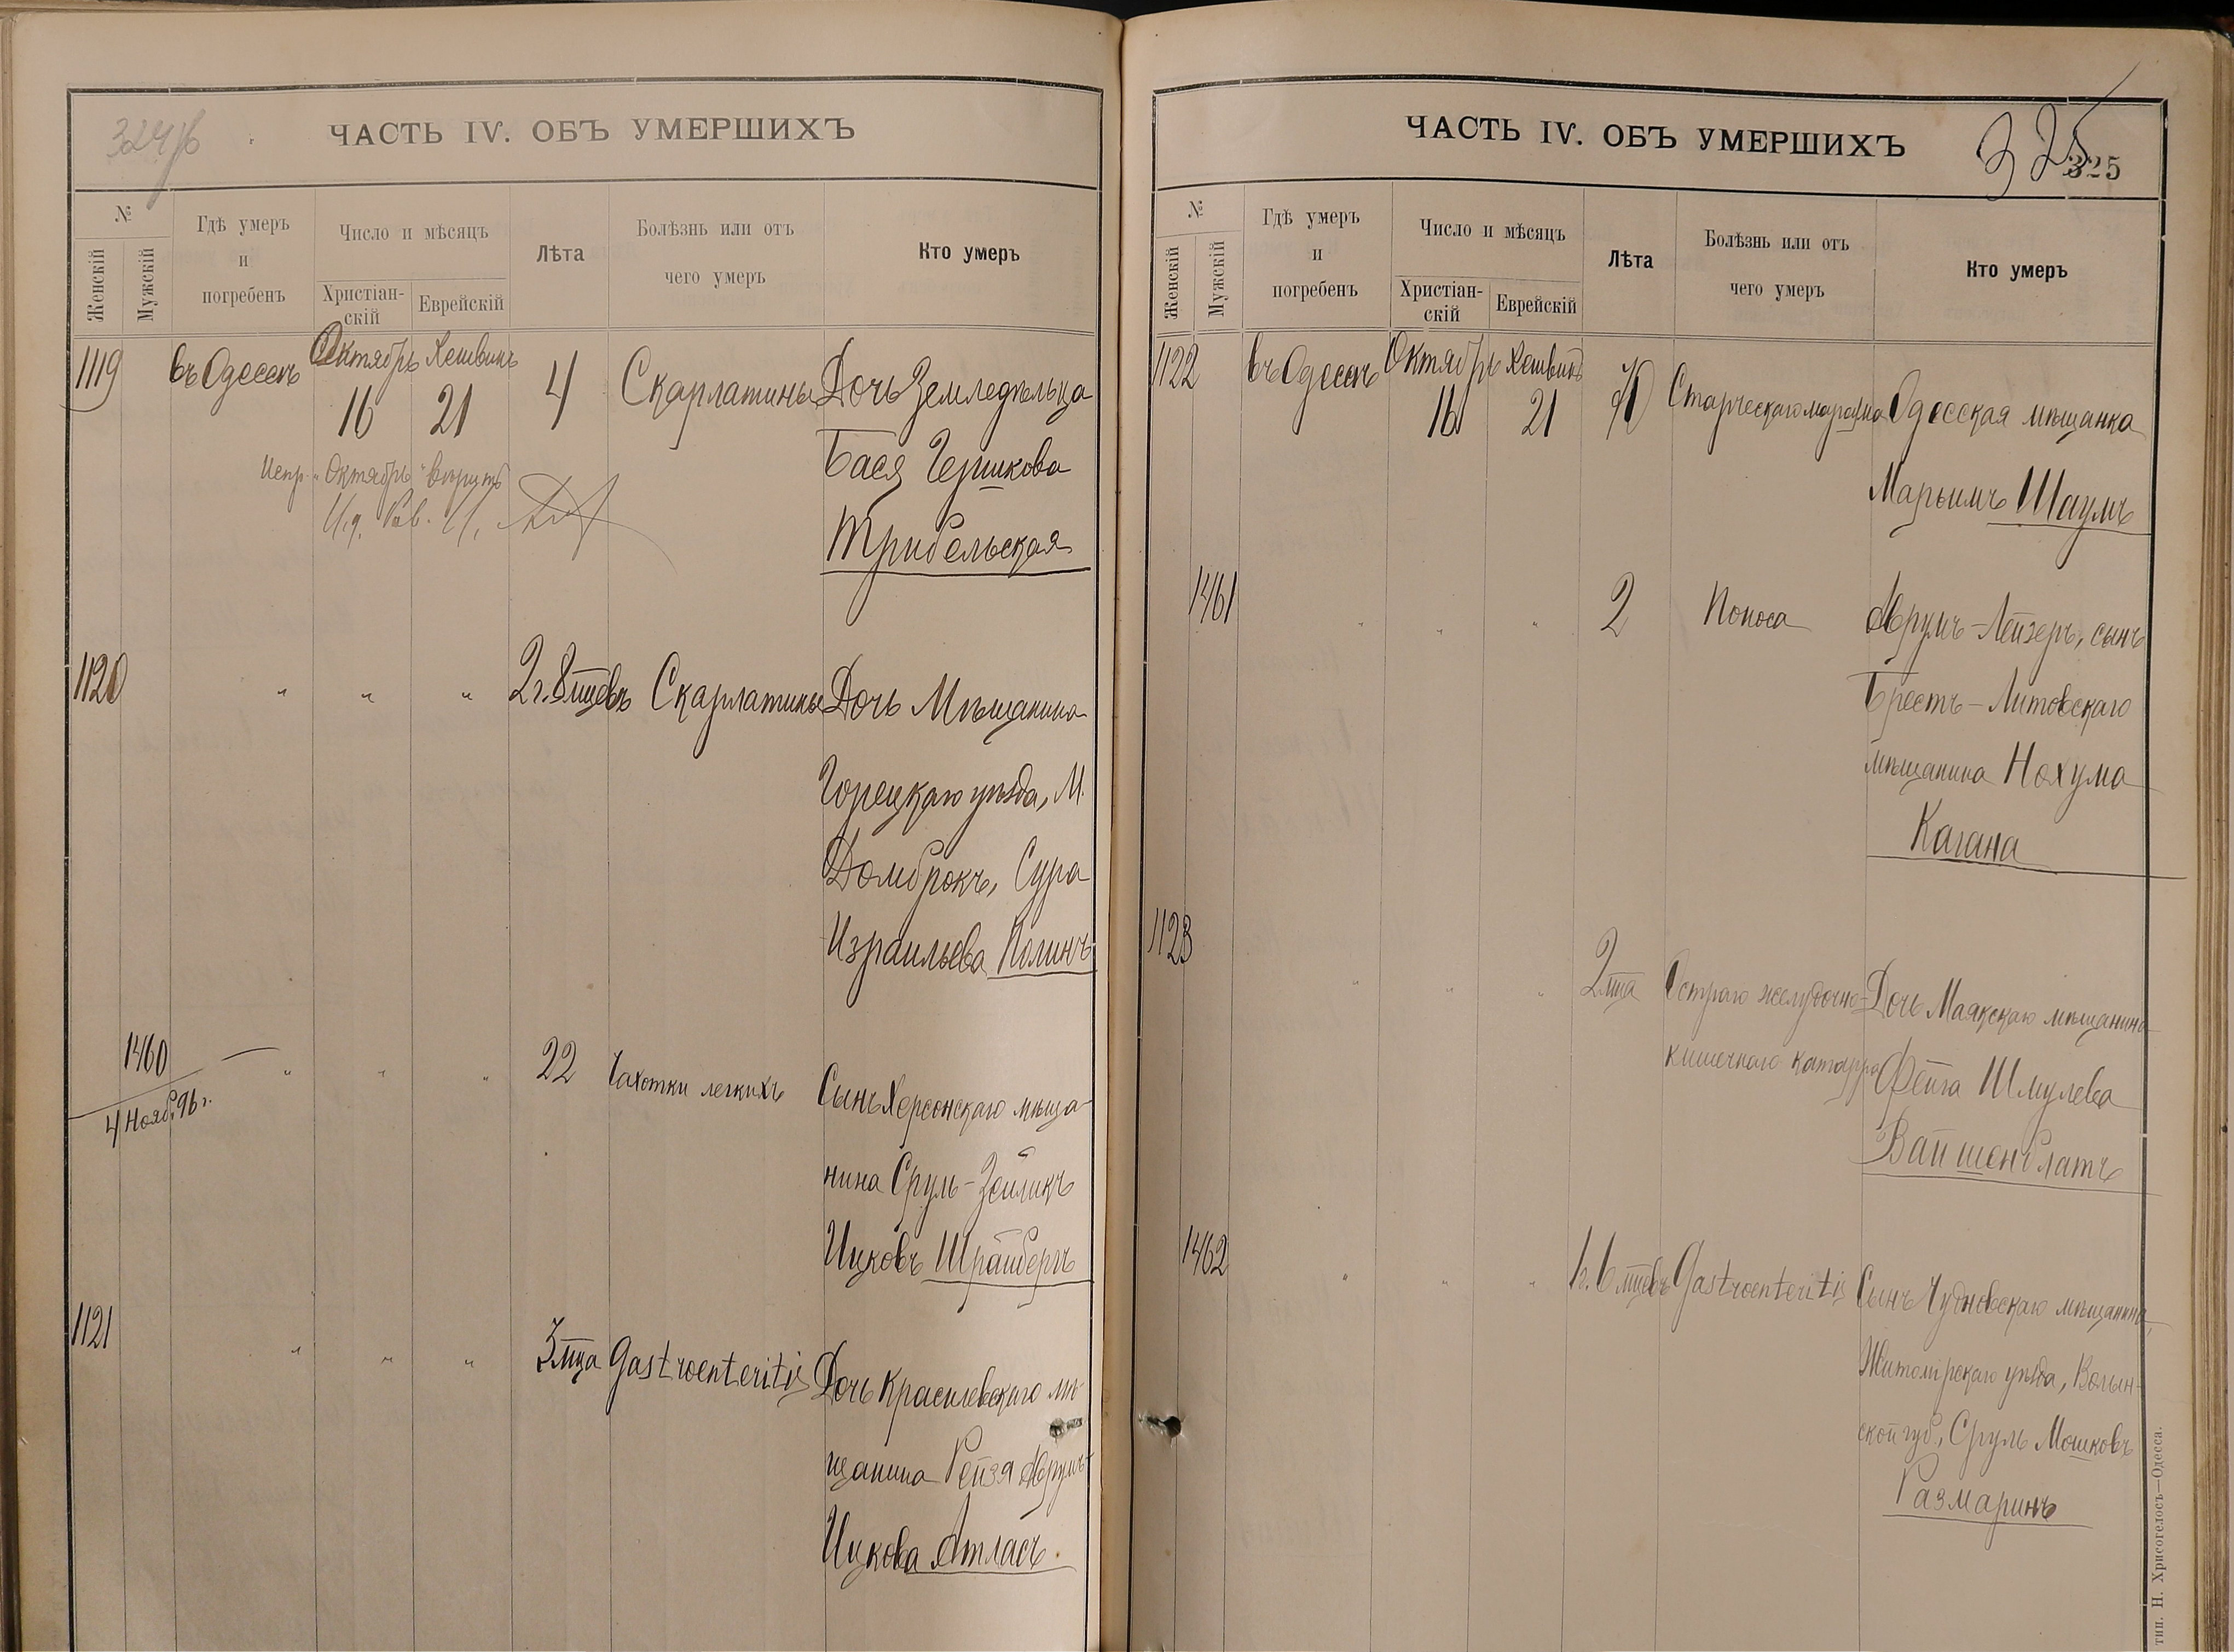 324 об
ЧАСТЬ IV. ОБЪ УМЕРШИХЪ
№
Женскій
Мужскій
Гдѣ умеръ
и
погребенъ
Число и мѣсяцъ
Христіан-
скій
Еврейскій
Лѣта
Болѣзнь или отъ
чего умеръ
Кто умеръ
1119 въ Одессѣ Октябрь Хешвинъ 4 Скарлатины Дочь Земледѣльца
16 21
Бася Гершкова
Испр. "Октябрь" вѣрить
И.д. Рав.
Трибельская
1120 " " " 2 г. 8 мцевъ Скарлатины Дочь Мѣщанина
Горецкаго уѣзда, М.
Домброкъ, Сура
Израильева Полинъ
1460 " " " 22 Чахотки легкихъ Сынъ Херсонскаго мѣща-
4 Нояб. 96 г.
нина Сруль-Зейликъ
Ицковъ Шрайберъ
1121 " " " 3 мца Gastroenteritis Дочь Красилевскаго мѣ-
щанина Рейзя Аврумъ-
Ицкова Атласъ.
ЧАСТЬ IV. ОБЪ УМЕРШИХЪ
325
325
№
Женскій
Мужскій
Гдѣ умеръ
и
погребенъ
Число и мѣсяцъ
Христіан-
скій
Еврейскій
Лѣта
Болѣзнь или отъ
чего умеръ
Кто умеръ
1122 въ Одессѣ Октябрь Хешвинъ Старческаго маразма Одесская мѣщанка
16 21
Марьимъ Шаумъ
1461 " " " 2 Поноса Аврумъ-Лейзеръ, сынъ
Брестъ-Литовскаго
мѣщанина Нохума
Кагана
1123 " " " 2 мца Остраго желудочно- Дочь Маякскаго мѣщанина
кишечнаго катарра Фейга Шмулева
Вайшенблатъ
1462 " " " 1 г. 6 мцевъ Gastroenteritis Сынъ Чудновскаго мѣщанина,
Житомірскаго уѣзда, Волын-
ской губ., Сруль Мошковъ
Размаринъ
тип. Н. Хрисогелосъ—Одесса.